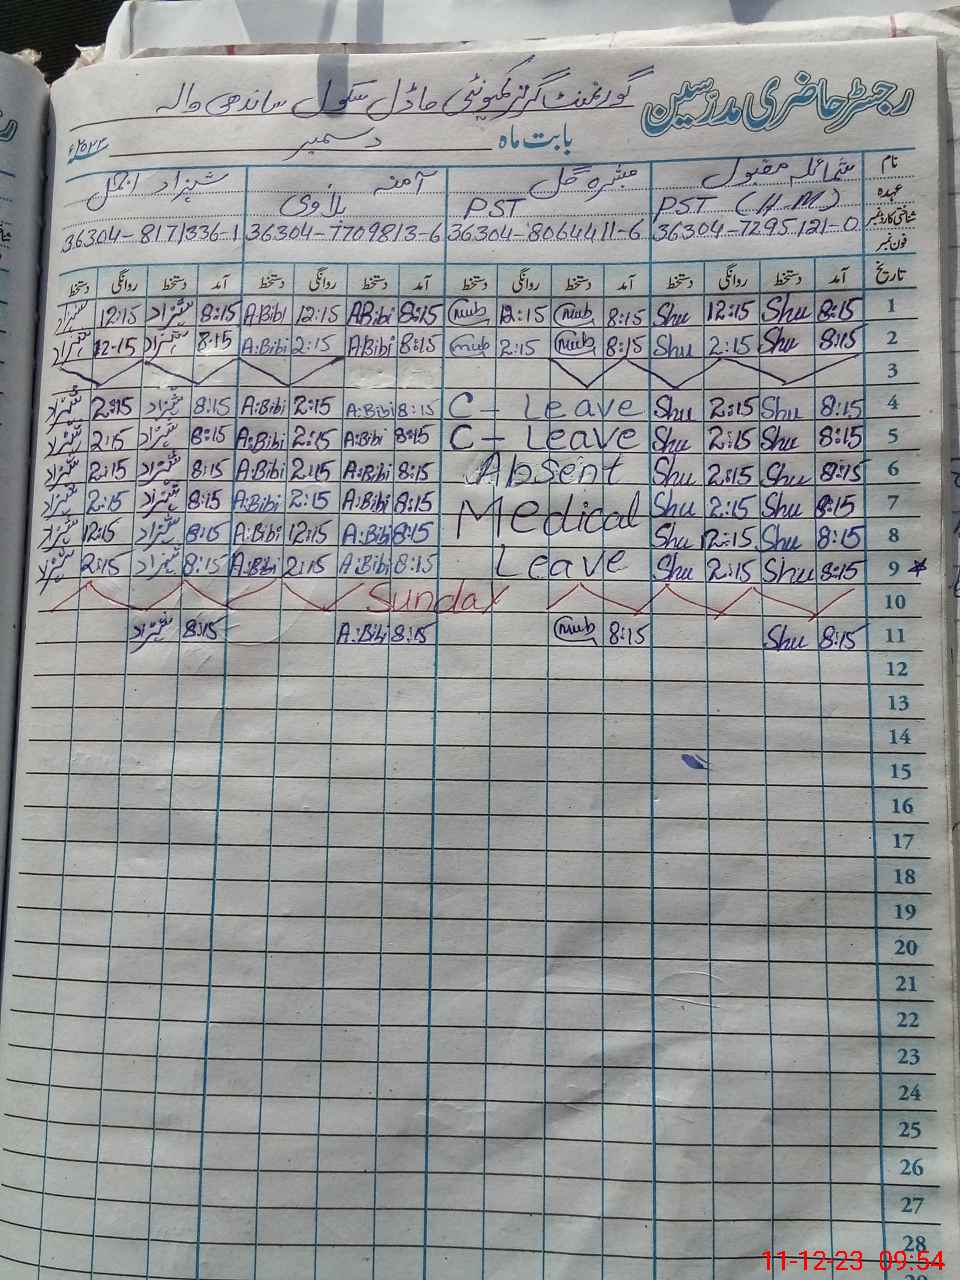 رجسٹر حاضری مدرسین گورنمنٹ گرلز کمیونٹی ماڈل سکول ساندھی والہ
بابت ماہ دسمبر
نام شمائلہ مقبول مبشرہ گل آمنہ شہزاد
عہدہ PST (H.M) PST
شناختی کارڈ نمبر 36304-7295121-0 36304-8064411-6 36304-7709813-6 36304-8171336-1
فون نمبر
تاریخ آمد دستخط روانگی دستخط آمد دستخط روانگی دستخط آمد دستخط روانگی دستخط آمد دستخط روانگی دستخط
1 8:15 Shu 12:15 Shu 8:15 Mub 12:15 Mub 8:15 ABibi 12:15 A.Bibi 8:15 شہزاد 12:15 شہزاد
2 8:15 Shu 2:15 Shu 8:15 Mub 2:15 Mub 8:15 ABibi 2:15 A.Bibi 8:15 شہزاد 12:15 شہزاد
3
4 8:15 Shu 2:15 Shu C - Leave 8:15 A:Bibi 2:15 A:Bibi 8:15 شہزاد 2:15 شہزاد
5 8:15 Shu 2:15 Shu C - Leave 8:15 A:Bibi 2:15 A:Bibi 8:15 شہزاد 2:15 شہزاد
6 8:15 Shu 2:15 Shu Absent 8:15 A:Bibi 2:15 A:Bibi 8:15 شہزاد 2:15 شہزاد
7 8:15 Shu 2:15 Shu Medical 8:15 A:Bibi 2:15 A:Bibi 8:15 شہزاد 2:15 شہزاد
8 8:15 Shu 12:15 Shu 8:15 A:Bibi 12:15 A:Bibi 8:15 شہزاد 12:15 شہزاد
9 8:15 Shu 2:15 Shu Leave 8:15 A:Bibi 2:15 A:Bibi 8:15 شہزاد 2:15 شہزاد
10 Sunday
11 8:15 Shu 8:15 Mub 8:15 A:Bibi 8:15 شہزاد
12
13
14
15
16
17
18
19
20
21
22
23
24
25
26
27
28
11-12-23 09:54